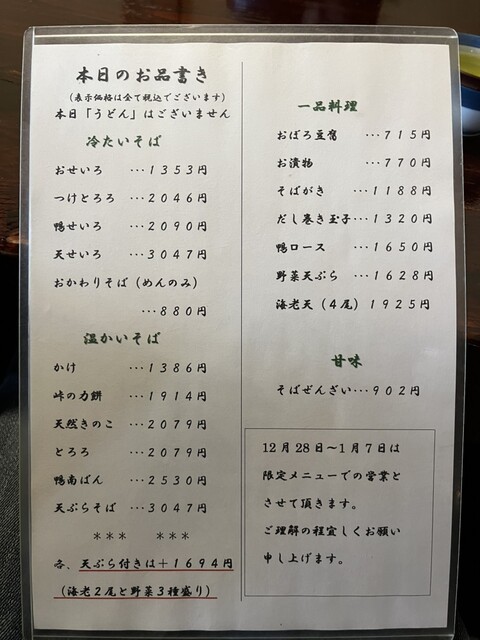 本日のお品書き
(表示価格は全て税込でございます)
本日「うどん」はございません
冷たいそば
おせいろ ・・・1353円
つけとろろ ・・・2046円
鴨せいろ ・・・2090円
天せいろ ・・・3047円
おかわりそば(めんのみ)
・・・880円
温かいそば
かけ ・・・1386円
峠の力餅 ・・・1914円
天然きのこ ・・・2079円
とろろ ・・・2079円
鴨南ばん ・・・2530円
天ぷらそば ・・・3047円
*** ***
各、天ぷら付きは+1694円
(海老2尾と野菜3種盛り)
一品料理
おぼろ豆腐 ・・・715円
お漬物 ・・・770円
そばがき ・・・1188円
だし巻き玉子・・・1320円
鴨ロース ・・・1650円
野菜天ぷら ・・・1628円
海老天(4尾)1925円
甘味
そばぜんざい・・・902円
12月28日~1月7日は
限定メニューでの営業と
させて頂きます。
ご理解の程宜しくお願い
申し上げます。